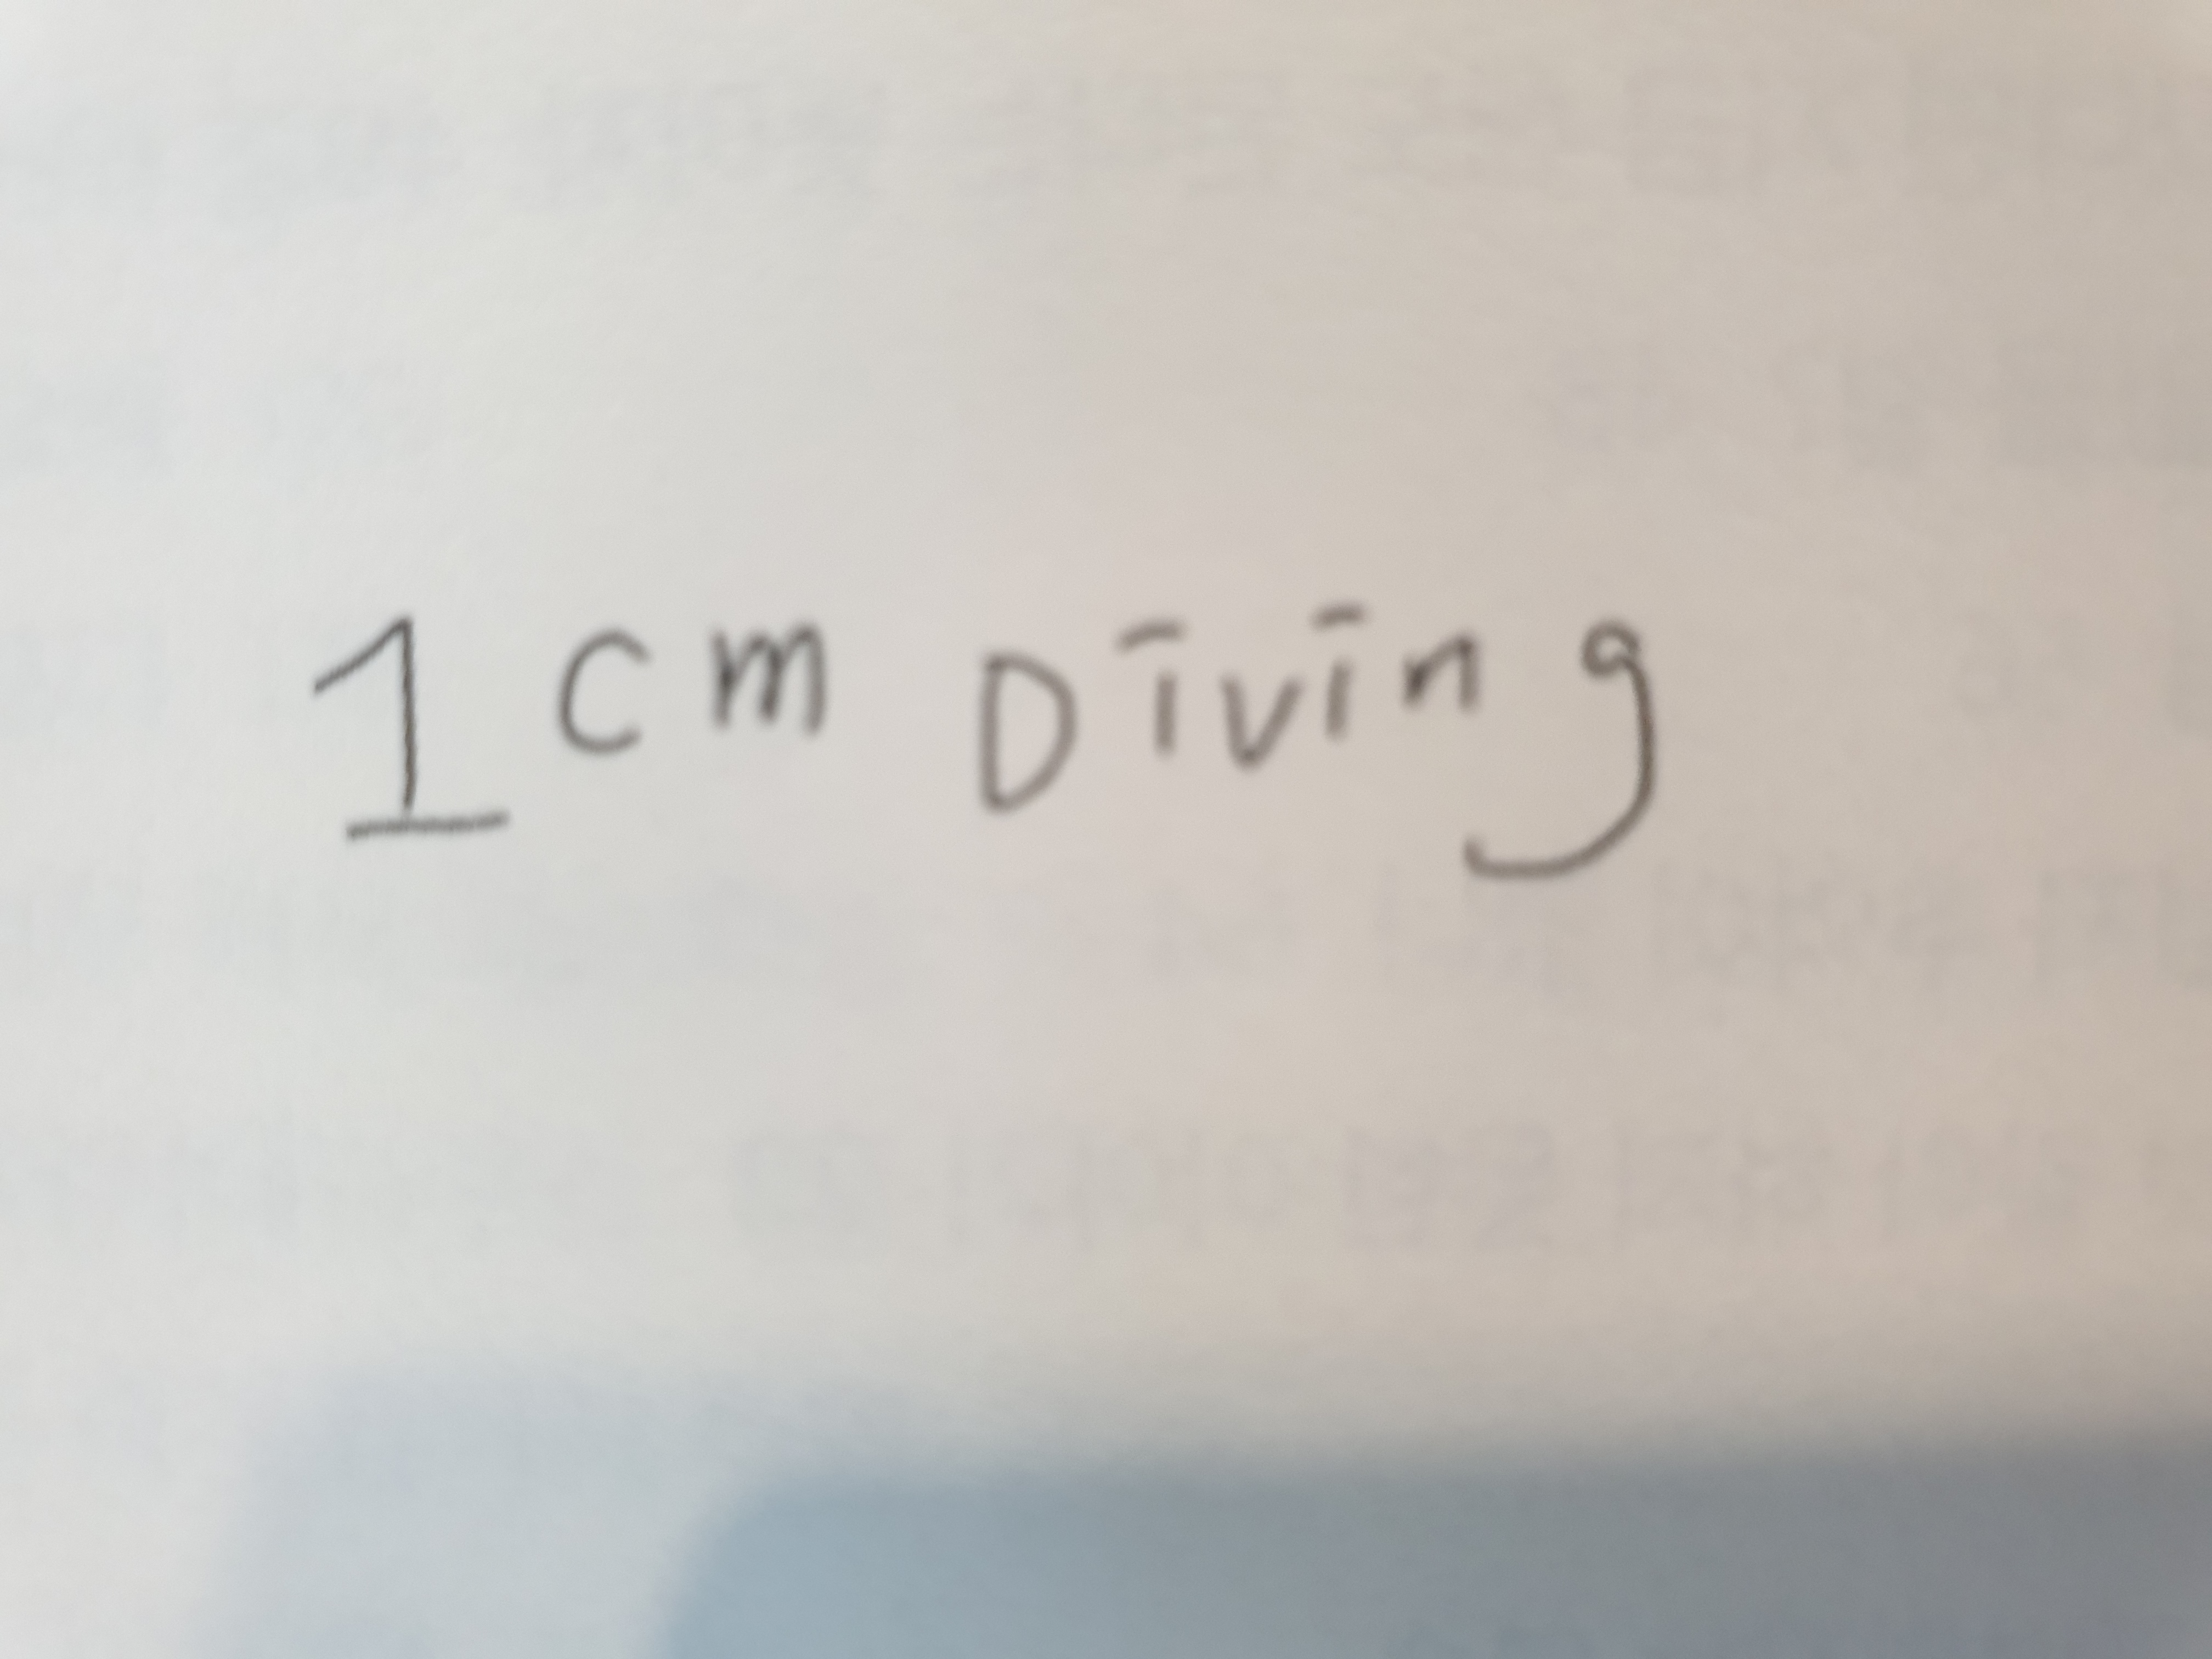 1cm Diving